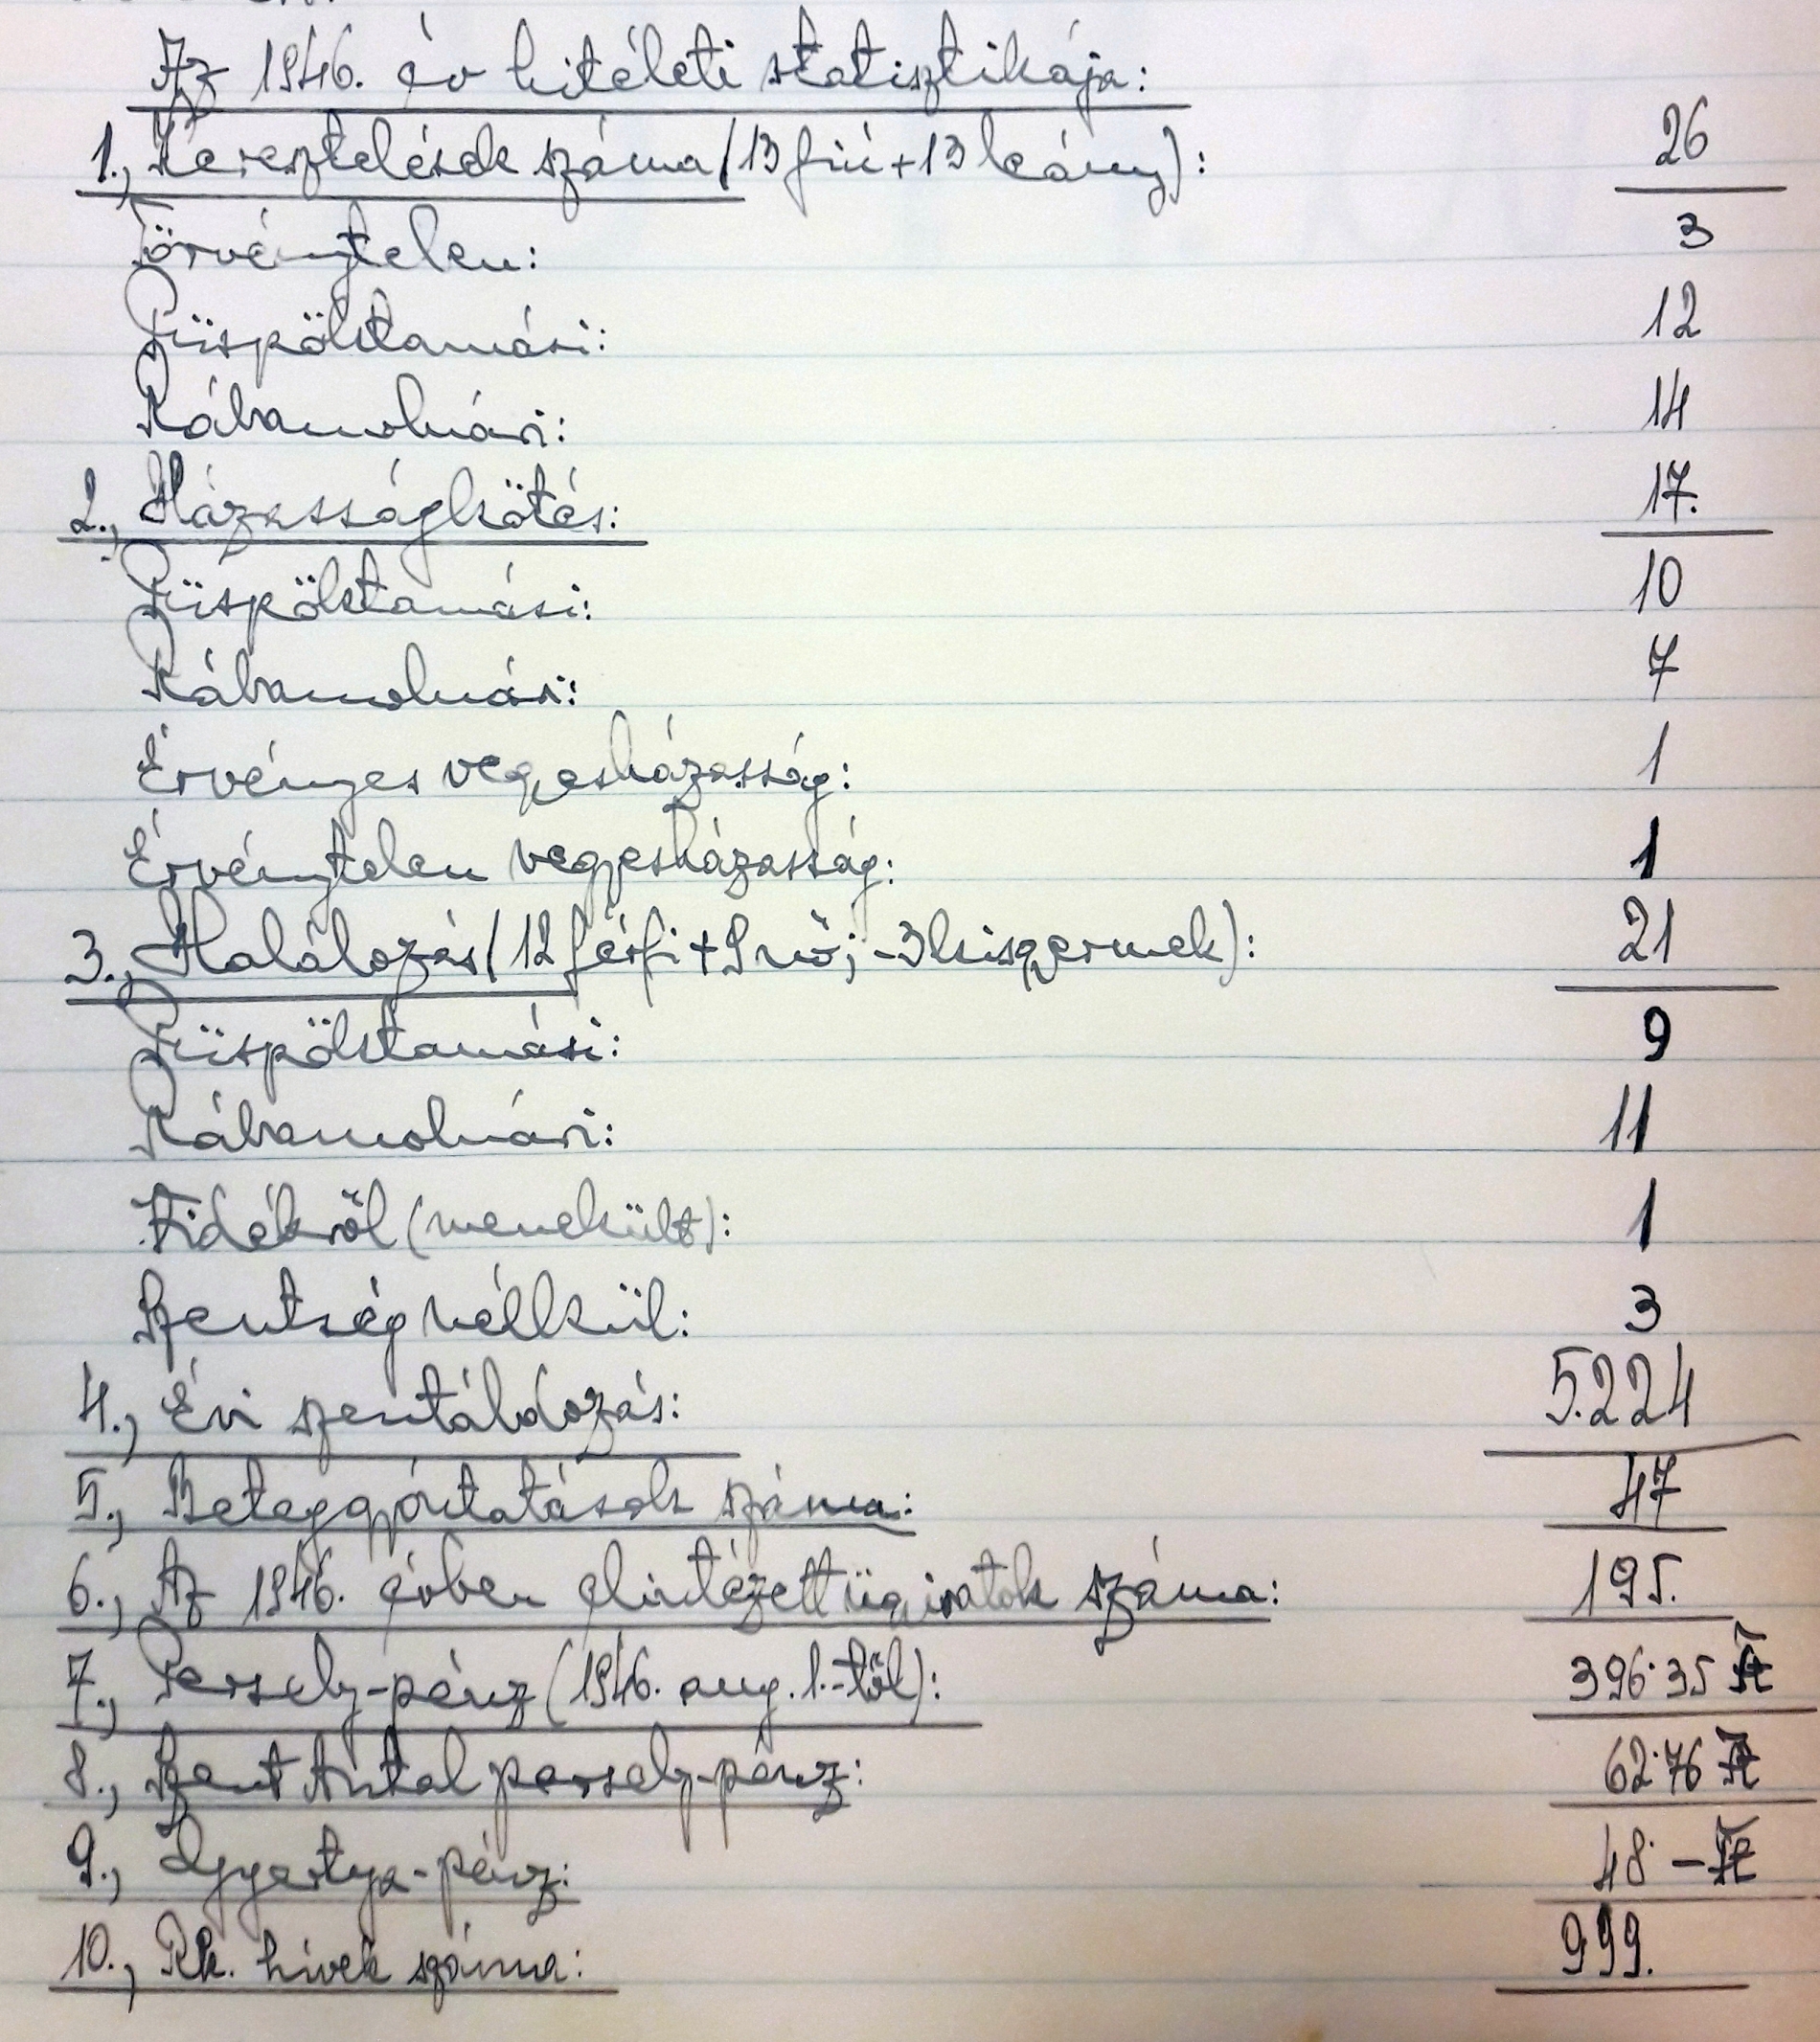 Az 1946. év hitéleti statisztikája:
1., Keresztelések száma (13 fiú + 13 leány): 26
Törvénytelen: 3
Püspöktamási: 12
Rábamolnári: 14
2., Házasságkötés: 17.
Püspöktamási: 10
Rábamolnári: 7
Érvényes vegyesházasság: 1
Érvénytelen vegyesházasság: 1
3., Halálozás (12 férfi + 9 nő; - 3 kisgyermek): 21
Püspöktamási: 9
Rábamolnári: 11
Vidékről (menekült): 1
Szentség nélkül: 3
4., Évi szentáldozás: 5.224
5., Beteggyóntatások száma: 47
6., Az 1946. évben elintézett ügyiratok száma: 195.
7., Persely-pénz (1946. aug. 1.-től): 396·35 Ft
8., Szent Antal persely-pénz: 62·76 Ft
9., Gyertya-pénz: 48·— Ft
10., Rk. hívek száma: 999.